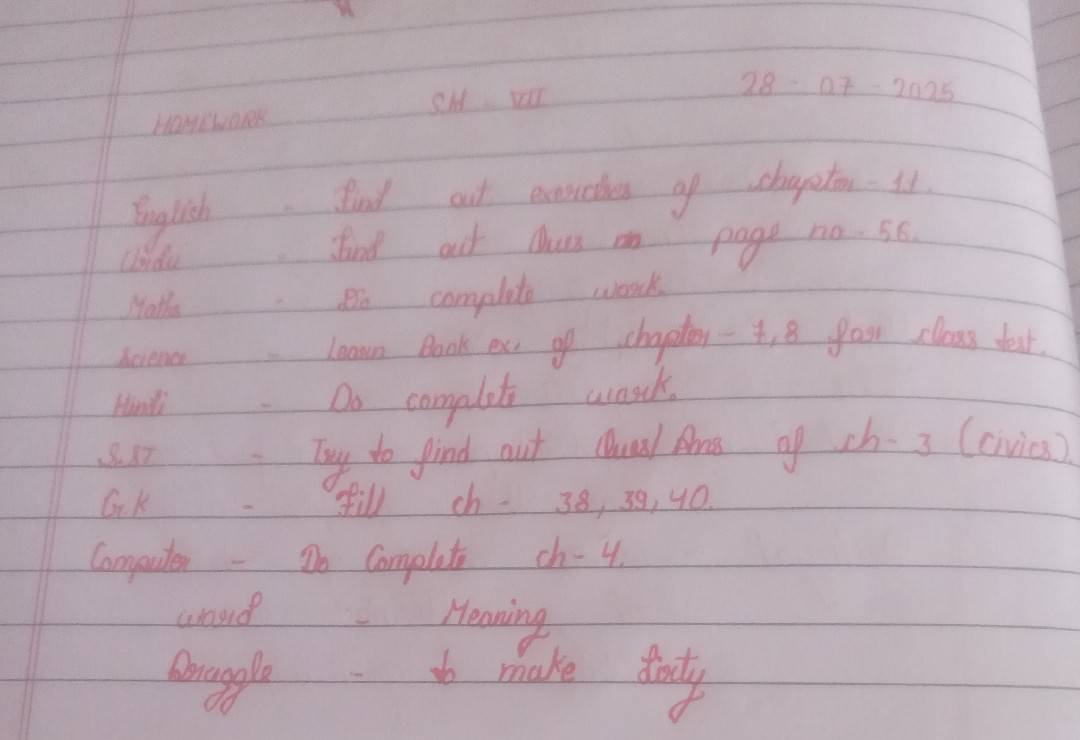 HOMEWORK SM - VII 28 - 07 - 2025
English - find out exercises of chapter - 11.
Urdu - find out Ques page no - 56.
Maths - Do complete work.
Science - learn Book ex. of chapter - 7, 8 for class test.
Hindi - Do complete work.
S.ST - Try to find out Ques/Ans of ch - 3 (civics)
G.K - Fill ch - 38, 39, 40.
Computer - Do Complete ch - 4.
word - Meaning
Draggle - to make dirty